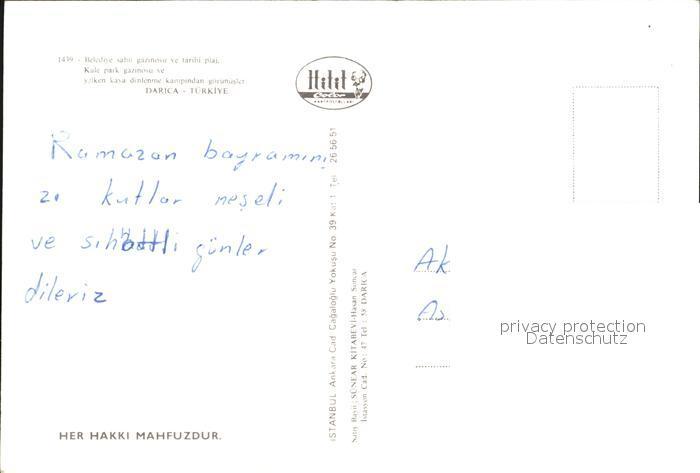 1439 - Belediye sahil gazinosu ve tarihi plaj,
Kale park gazinosu ve
yelken kaya dinlenme kampından görünüşler
DARICA - TÜRKİYE
Hitit
Color
KARTPOSTALLARI
Ramazan bayramını
zı kutlar neşeli
ve sıhhatli günler
dileriz
Ak
As
privacy protection
Datenschutz
İSTANBUL Ankara Cad. Cağaloğlu Yokuşu No. 39 Kat 1 Tel : 26 56 51
Satış Bayii : SUNEAR KİTABEVİ-Hasan Sunear
İstasyon Cad. No : 47 Tel : 58 DARICA
HER HAKKI MAHFUZDUR.